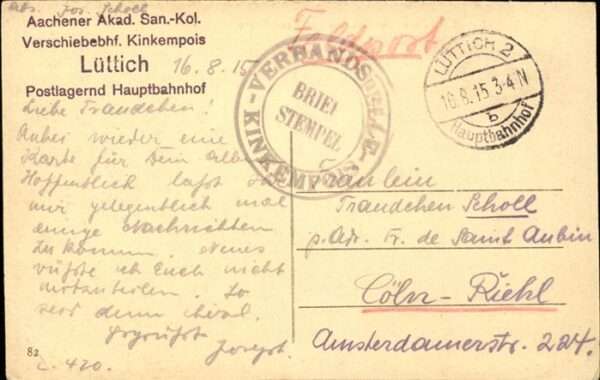 Abs. Jos. Scholl
Aachener Akad. San.-Kol.
Verschiebebhf. Kinkempois
Lüttich 16.8.15
Postlagernd Hauptbahnhof
Feldpost
VERBANDS
KINKEMPOIS
BRIEF
STEMPEL
LÜTTICH 2
16.8.15 3-4N
b
Hauptbahnhof
Liebe Traudchen!
Anbei wieder eine
Karte für Dein Album
Hoffentlich laßt Ihr
mir gelegentlich mal
einige Nachrichten
zukommen. Neues
wüßte ich Euch nicht
mitzuteilen. So
seid denn
gegrüßt
Joseph.
Fräulein
Traudchen Scholl
p. Adr. Fr. de Saint Aubin
Cöln-Riehl
Amsterdamerstr. 224.
82
C. 420.